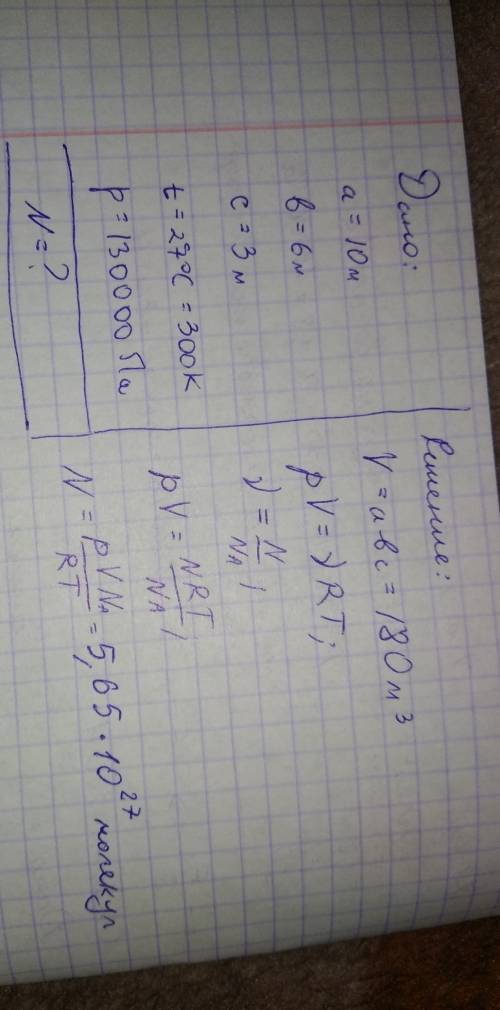 Дано:
a = 10м
в = 6м
c = 3м
t = 27°C = 300K
p = 130000 Па
N = ?
Решение:
V = авс = 180м³
pV = νRT;
ν = N/Nₐ;
pV = NRT/Nₐ;
N = pVNₐ/RT = 5,65·10²⁷ молекул